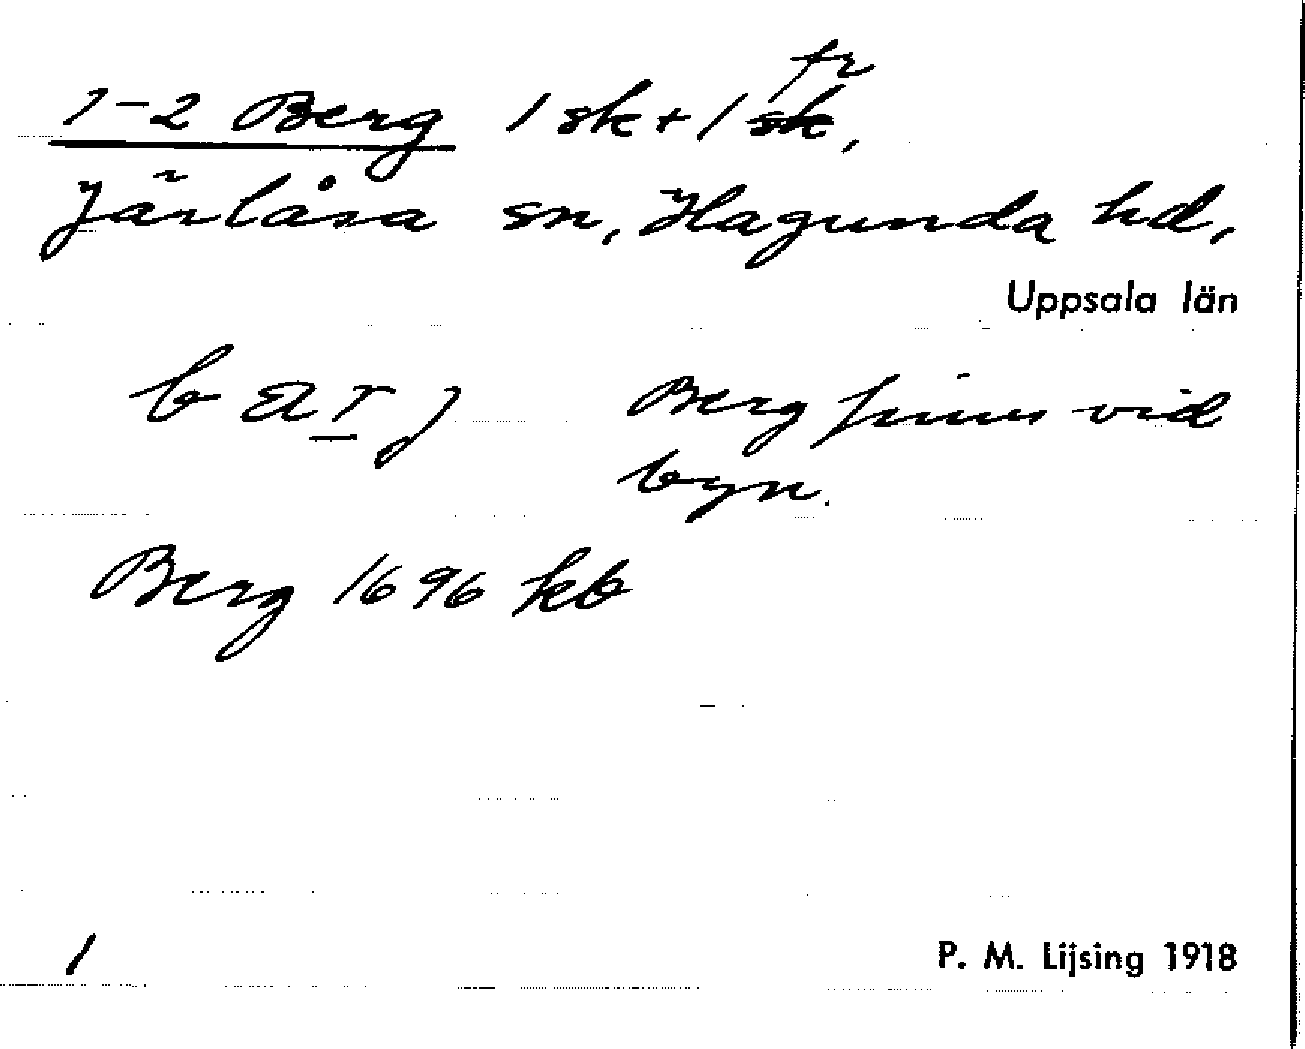 fr
1-2 Berg 1 sk + 1 sk,
Järlåsa sn, Hagunda hd,
Uppsala län
barj Berg finns vid
byn.
Berg 1696 kb
1 P. M. Lijsing 1918